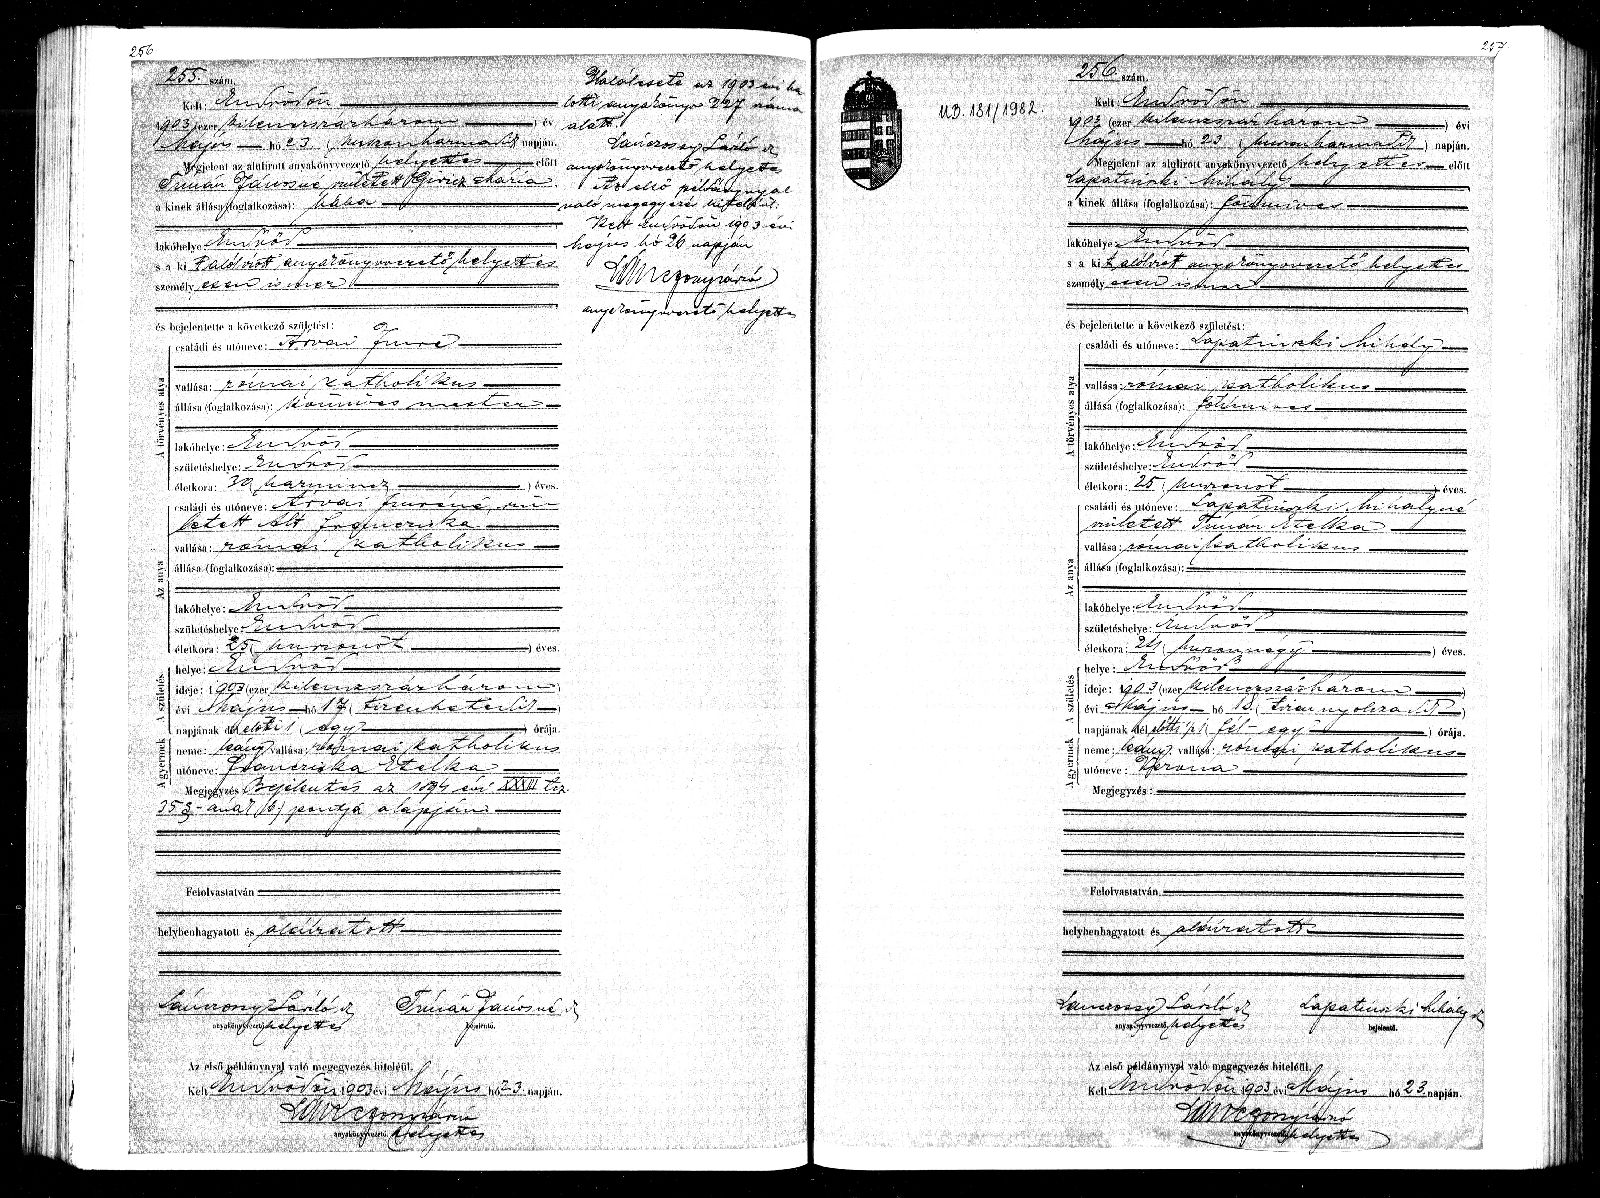 256
255. szám.
Kelt: Endrődön
1903 (ezer kilenczszázhárom) év
Május hó 23 (huszonharmadik) napján.
Megjelent az alulirott anyakönyvvezető helyettes előtt
Jánosné született Mária
a kinek állása (foglalkozása): bába
lakóhelye Endrőd
s a kit alólirott anyakönyvvezető helyettes
személyesen ismer
és bejelentette a következő születést:
A törvényes atya
családi és utóneve: Árvai Imre
vallása: római katholikus
állása (foglalkozása): kőmíves mester
lakóhelye: Endrőd
születéshelye: Endrőd
életkora: 30 (harmincz) éves.
Az anya
családi és utóneve: Árvai Imréné szü-
letett Alt Francziska
vallása: római katholikus
állása (foglalkozása):
lakóhelye: Endrőd
születéshelye: Endrőd
életkora: 25 (huszonöt) éves.
A születés
helye: Endrőd
ideje: 1903 (ezer kilenczszázhárom)
évi Május hó 17 (tizenhetedik)
napjának délelőtti 1 (egy) órája.
A gyermek
neme: leány vallása: római katholikus
utóneve: Francziska Etelka
Megjegyzés Bejelentés az 1894 évi XXXIII tcz.
35 §-ának b) pontja alapján
Felolvastatván
helybenhagyatott és aláiratott
László
anyakönyvvezető helyettes
Jánosné
bejelentő.
Az első példánynyal való megegyezés hiteléül.
Kelt Endrődön 1903 évi Május hó 23. napján.
anyakönyvvezető helyettes
Halálesete az 1903 évi ha-
lotti anyakönyv 227 száma
alatt.
László
anyakönyvvezető helyettes
Az első példánynyal
való megegyezés hiteléül.
Kelt Endrődön 1903 évi
május hó 26 napján
anyakönyvvezető helyettes
257
UD. 181/1982.
256. szám.
Kelt Endrődön
1903 (ezer kilenczszázhárom) évi
Május hó 23 (huszonharmadik) napján.
Megjelent az alulirott anyakönyvvezető helyettes előtt
Lapatinszki Mihály
a kinek állása (foglalkozása): földmíves
lakóhelye: Endrőd
s a kit alólirott anyakönyvvezető helyettes
személyesen ismer
és bejelentette a következő születést:
A törvényes atya
családi és utóneve: Lapatinszki Mihály
vallása: római katholikus
állása (foglalkozása): földmíves
lakóhelye: Endrőd
születéshelye: Endrőd
életkora: 25 (huszonöt) éves.
Az anya
családi és utóneve: Lapatinszki Mihályné
született Etelka
vallása: római katholikus
állása (foglalkozása):
lakóhelye: Endrőd
születéshelye: Endrőd
életkora: 24 (huszonnégy) éves.
A születés
helye: Endrőd
ideje: 1903 (ezer kilenczszázhárom)
évi Május hó 18 (tizennyolczadik)
napjának délelőtti ½1 (fél-egy) órája.
A gyermek
neme: leány vallása: római katholikus
utóneve: Verona
Megjegyzés:
Felolvastatván,
helybenhagyatott és aláiratott
László
anyakönyvvezető helyettes
Lapatinszki Mihály
bejelentő.
Az első példánynyal való megegyezés hiteléül.
Kelt Endrődön 1903 évi Május hó 23. napján.
anyakönyvvezető helyettes